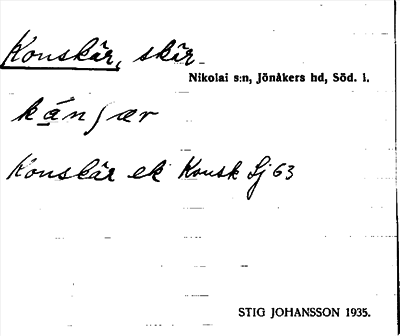 Konskär, skär
Nikolai s:n, Jönåkers hd, Söd. l.
kánʃær
Konskär ek Konsk Sj 63
STIG JOHANSSON 1935.